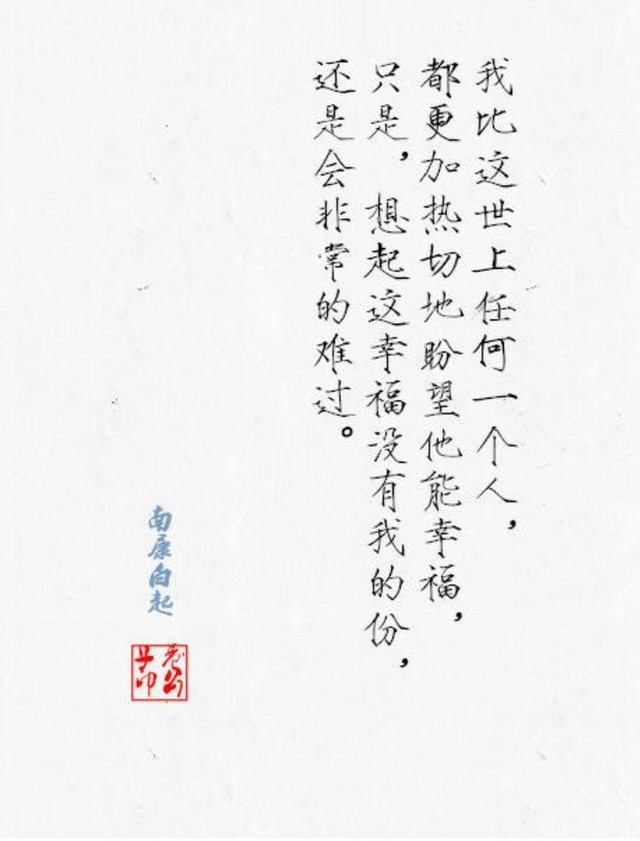 我比这世上任何一个人，
都更加热切地盼望他能幸福，
只是，想起这幸福没有我的份，
还是会非常的难过。
南康白起